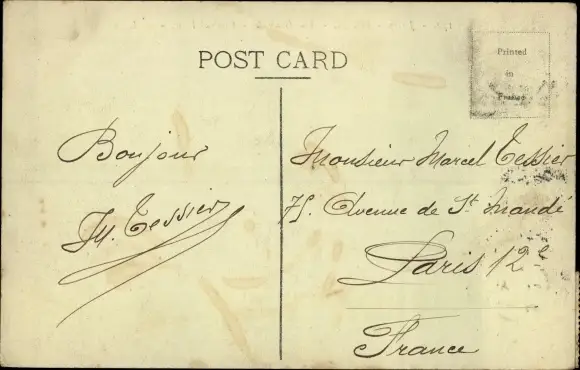 POST CARD
Printed
in
Bonjour
Tessier
Monsieur Marcel Tessier
75. Avenue de St Mandé
Paris 12e
France